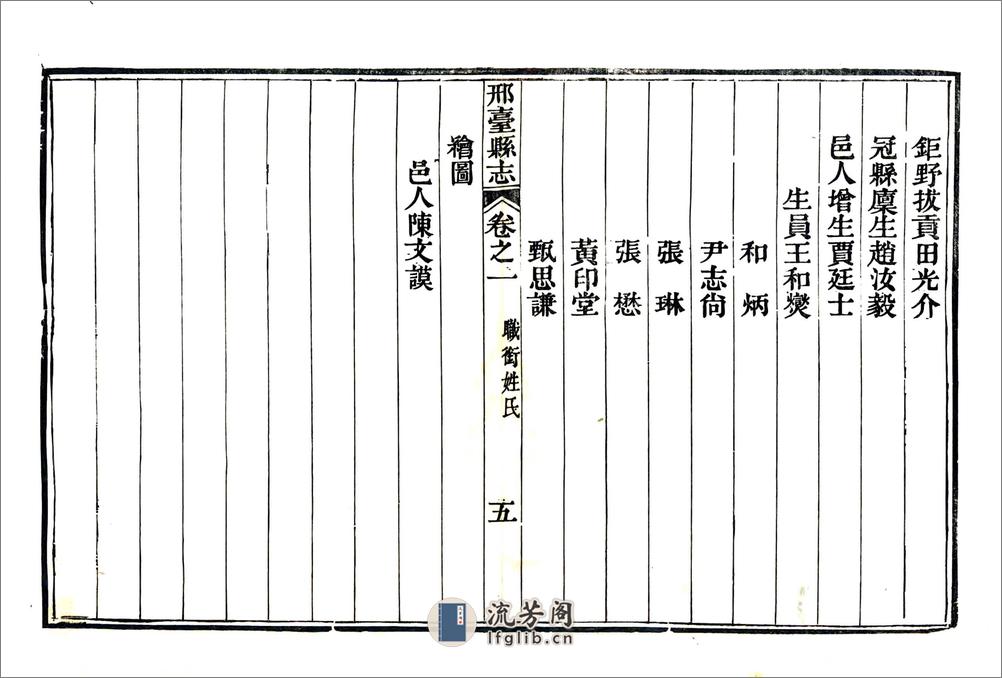 鉅野拔貢田光介
冠縣廩生趙汝毅
邑人增生賈廷士
生員王和爕
和炳
尹志尙
張琳
張懋
黃印堂
甄思謙
邢臺縣志
卷之一
職銜姓氏
五
繪圖
邑人陳文謨
流芳阁
lfglib.cn